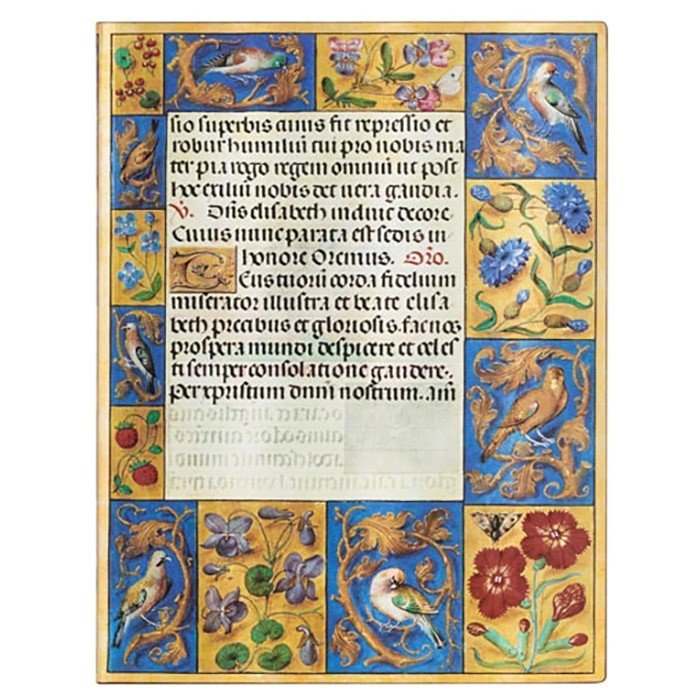 sio superbis cuius fit repressio et
robur humiliū cui pro nobis ma
ter pia rogo regem omniū ut post
hoc exiliū nobis det vera gaudia.
V. Diis elisabeth induic decore
Cuius nunc parata est sedis in
honore Oremus. Oro.
Deus tuorū corda fidelium
miserator illustra et beate elisa
beth precibus et gloriosis. fac nos
prospera mundi despicere et celes
ti semper consolatione gaudere.
per xpristum dnm̄ nostrum. am̄